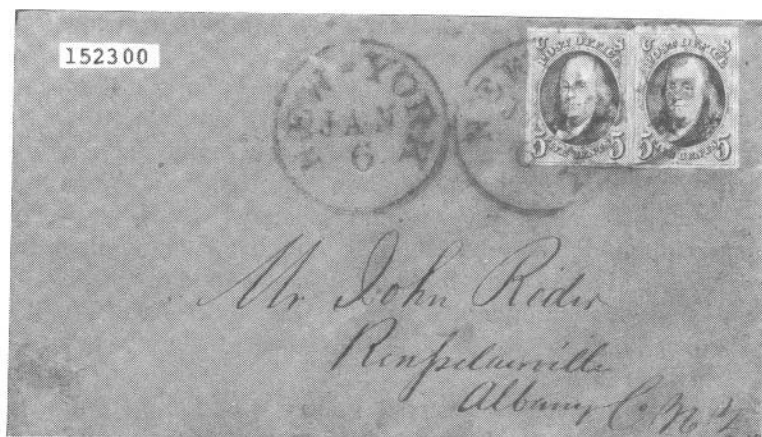 152300
NEW-YORK
JAN
6
NEW
U S
POST OFFICE
5 FIVE CENTS 5
U S
POST OFFICE
5 FIVE CENTS 5
Mr John Rider
Rensselaerville
Albany Co. N Y